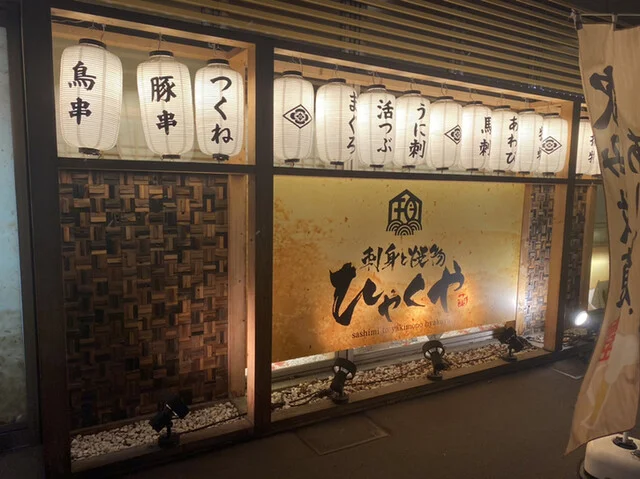 鳥串
豚串
つくね
まぐろ
活つぶ
うに刺
馬刺
あわび
刺身と焼物
ひゃくや
sashimi to yakimono hyakuya